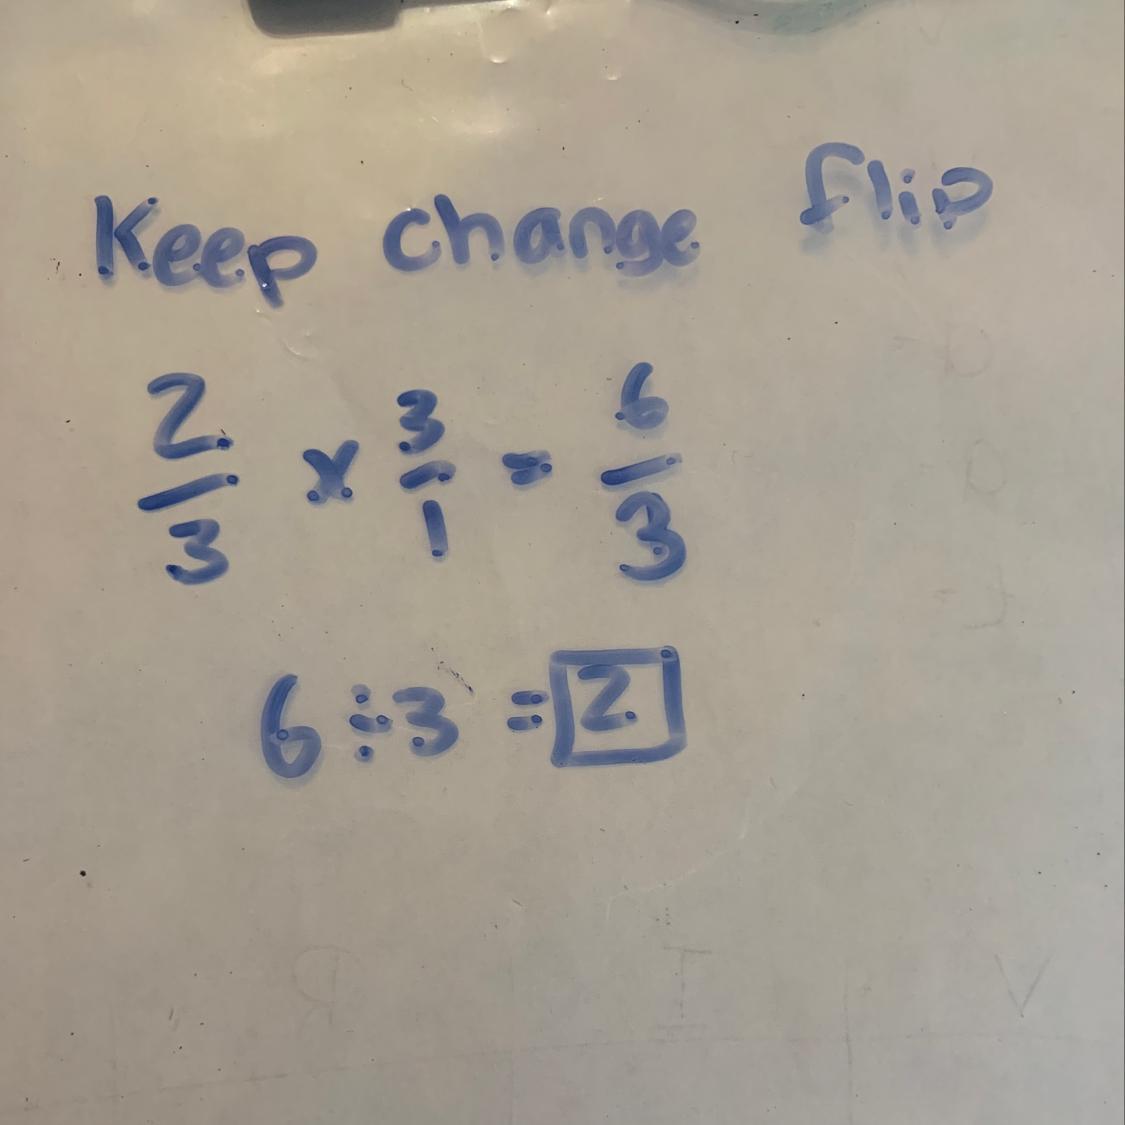 Keep change flip
2/3 x 3/1 = 6/3
6 ÷ 3 = 2